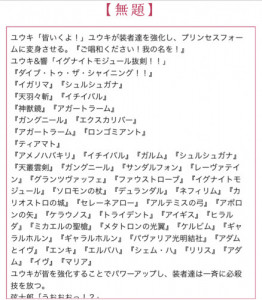 【無題】
ユウキ「皆いくよ！」ユウキが装者達を強化し、プリンセスフォー
ムに変身させる。『ご唱和ください！我の名を！』
ユウキ&響「イグナイトモジュール抜剣！！」
『ダイブ・トゥ・ザ・シャイニング！！』
『イガリマ』『シュルシャガナ』
『天羽々斬』『イチイバル』
『神獣鏡』『アガートラーム』
『ガングニール』『エクスカリバー』
『アガートラーム』『ロンゴミアント』
『ティアマト』
『アメノハバキリ』『イチイバル』『ガルム』『シュルシャガナ』
『天叢雲剣』『ガングニール』『サンダルフォン』『レーヴァテイ
ン』『グランツヴァッフェ』『ファウストローブ』『イグナイトモ
ジュール』『ソロモンの杖』『デュランダル』『ネフィリム』『カ
リオストロの城』『セレーネアロー』『アルテミスの弓』『アポロ
ンの矢』『ケラウノス』『トライデント』『アイギス』『ヒラル
ダ』『ミカエルの聖槍』『メタトロンの光翼』『ケルビム』『ギャ
ラルホルン』『ギャラルホルン』『バヴァリア光明結社』『アダム
とイヴ』『エンキ』『エルバハ』『シェム・ハ』『リリス』『アダ
ム』『イヴ』『マリア』
ユウキが皆を強化することでパワーアップし、装者達は一斉に必殺
技を放つ。
弦十郎「うおおおっ！？」